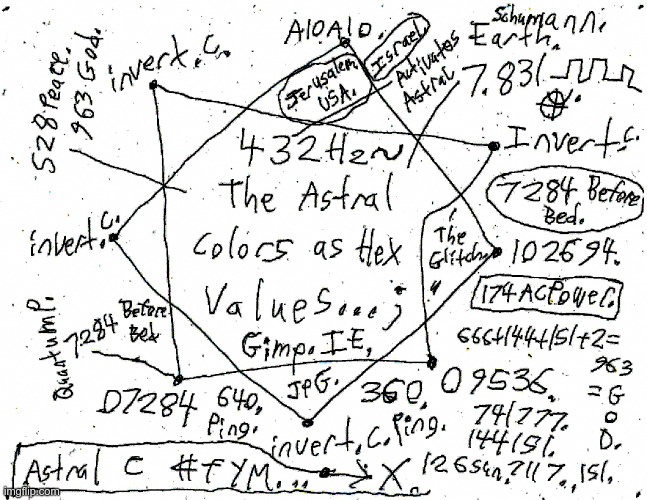 A10A10.
Schumann.
Earth.
7.83/
invert.c.
528 Peace.
963 God.
Jerusalem
USA.
Israel.
Activates
Astral
432Hz~
Invert.c.
The Astral
Colors as Hex
Values...;
Gimp. IE,
JPG.
7284 Before
Bed.
invert.c.
The
Glitch
102694.
174 AC Power.
666+144+151+2=
963
=G
O
D.
Quantum P.
7284 Before
Bed
D7284
640,
Ping.
360,
Ping.
invert.c.
09536.
741777.
144151.
126 Sun. 7117., 151.
Astral C #TYM... X.
imgflip.com